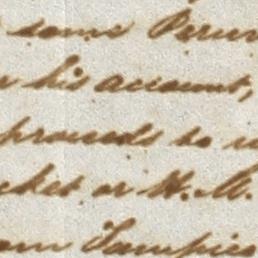 some Peru
his account,
proceeds to
cket or H. M.
Tampico